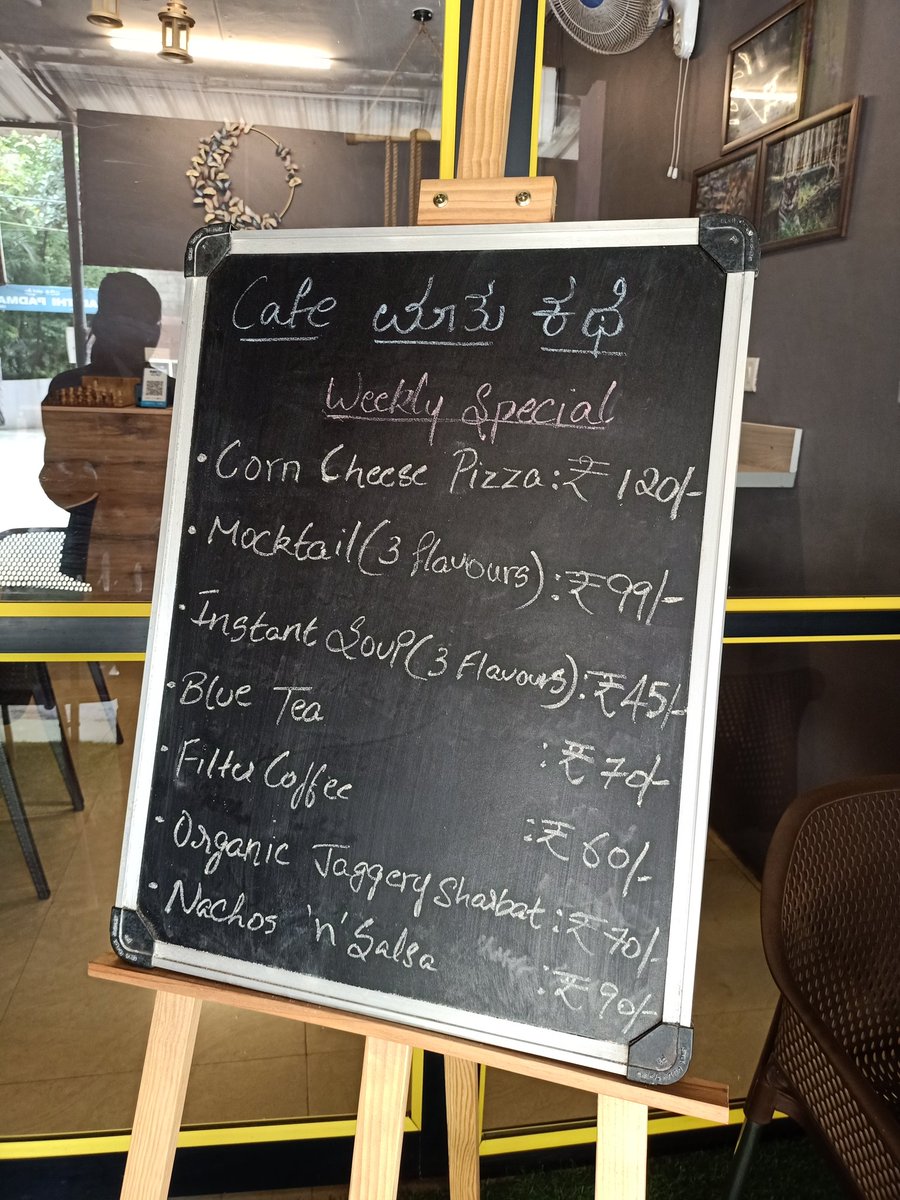 Cafe ಮಾತು ಕಥೆ
Weekly Special
• Corn Cheese Pizza : ₹ 120/-
• Mocktail (3 flavours) : ₹ 99/-
• Instant Soup (3 Flavours) : ₹ 45/-
• Blue Tea : ₹ 70/-
• Filter Coffee : ₹ 60/-
• Organic Jaggery Sharbat : ₹ 70/-
• Nachos 'n' Salsa : ₹ 90/-